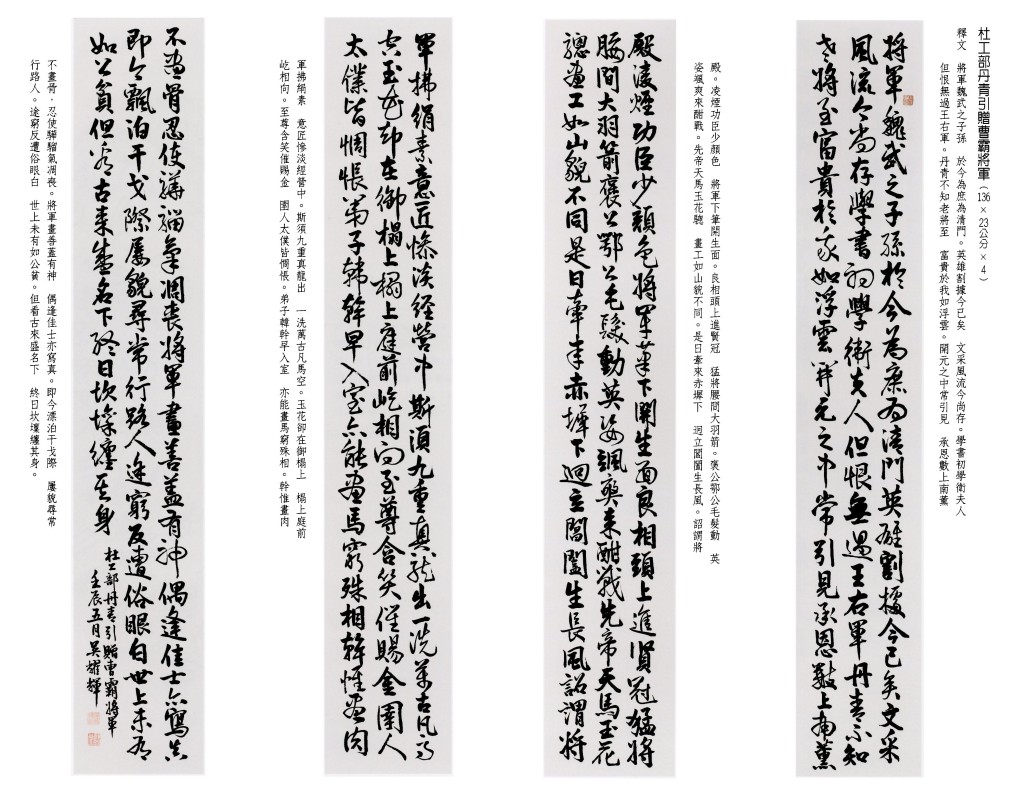 杜工部丹青引贈曹霸將軍（136×23公分×4）
釋文　將軍魏武之子孫　於今為庶為清門。英雄割據今已矣　文采風流今尚存。學書初學衛夫人
但恨無過王右軍。丹青不知老將至　富貴於我如浮雲。開元之中常引見　承恩數上南薰
將軍魏武之子孫於今為庶為清門英雄割據今已矣文采
風流今尚存學書初學衛夫人但恨無過王右軍丹青不知
老將至富貴於我如浮雲開元之中常引見承恩數上南薰
殿。凌煙功臣少顏色　將軍下筆開生面。良相頭上進賢冠　猛將腰間大羽箭。褒公鄂公毛髮動　英
姿颯爽來酣戰。先帝天馬玉花驄　畫工如山貌不同。是日牽來赤墀下　迥立閶闔生長風。詔謂將
殿凌煙功臣少顏色將軍筆下開生面良相頭上進賢冠猛將
腰間大羽箭褒公鄂公毛髮動英姿颯爽來酣戰先帝天馬玉花
驄畫工如山貌不同是日牽來赤墀下迥立閶闔生長風詔謂將
軍拂絹素　意匠慘淡經營中。斯須九重真龍出　一洗萬古凡馬空。玉花卻在御榻上　榻上庭前
屹相向。至尊含笑催賜金　圉人太僕皆惆悵。弟子韓幹早入室　亦能畫馬窮殊相。幹惟畫肉
軍拂絹素意匠慘淡經營中斯須九重真龍出一洗萬古凡馬
空玉花卻在御榻上榻上庭前屹相向至尊含笑催賜金圉人
太僕皆惆悵弟子韓幹早入室亦能畫馬窮殊相幹惟畫肉
不畫骨，忍使驊騮氣凋喪。將軍畫善蓋有神　偶逢佳士亦寫真。即今漂泊干戈際　屢貌尋常
行路人。途窮反遭俗眼白　世上未有如公貧。但看古來盛名下　終日坎壈纏其身。
不畫骨忍使驊騮氣凋喪將軍畫善蓋有神偶逢佳士亦寫真
即今飄泊干戈際屢貌尋常行路人途窮反遭俗眼白世上未有
如公貧但看古來盛名下終日坎壈纏其身
杜工部丹青引贈曹霸將軍
壬辰五月吳耀輝